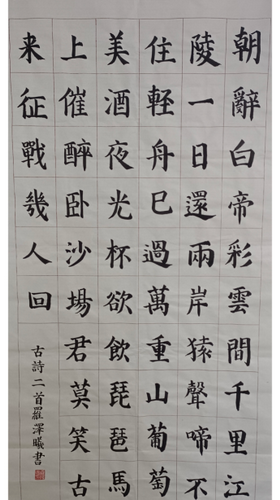 朝辭白帝彩雲間千里江
陵一日還兩岸猿聲啼不
住輕舟已過萬重山葡萄
美酒夜光杯欲飲琵琶馬
上催醉卧沙場君莫笑古
来征戰幾人回
古詩二首羅澤曦書